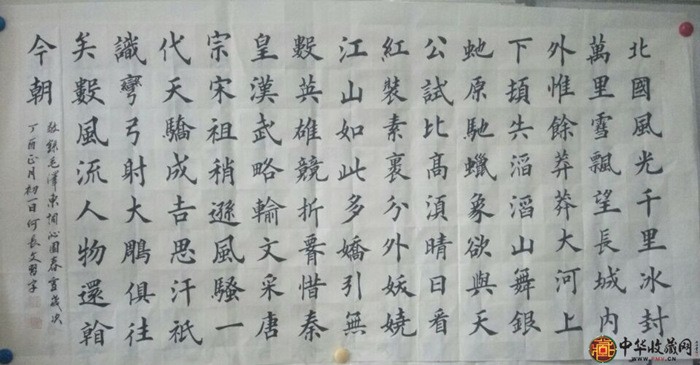 北國風光千里冰封
萬里雪飄望長城内
外惟餘莽莽大河上
下頓失滔滔山舞銀
虵原馳蠟象欲與天
公試比高湏晴日看
紅裝素裹分外妖嬈
江山如此多嬌引無
數英雄競折腰惜秦
皇漢武略輸文采唐
宗宋祖稍遜風騷一
代天驕成吉思汗祇
識彎弓射大鵰俱往
矣數風流人物還看
今朝
敬錄毛澤東詞沁園春雪歲次
丁酉正月初一日何長文
中华收藏网